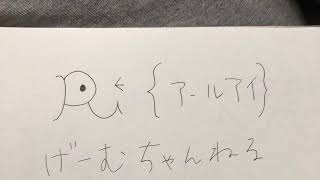 {アールアイ}
げーむちゃんねる